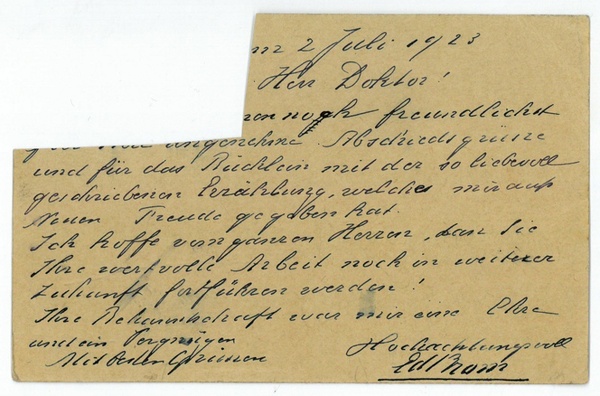 2 Juli 1923
Herr Doktor!
noch freundlichst
Ihre angenehme Abschiedsgrüsse
und für das Büchlein mit der so liebevoll
geschriebenen Erzählung, welches mir aufs
Neuen Freude gegeben hat.
Ich hoffe vom ganzen Herzen, dass Sie
Ihre wertvolle Arbeit noch in weiterer
Zukunft fortführen werden!
Ihre Bekanntschaft war mir eine Ehre
und ein Vergnügen
Mit besten Grüssen Hochachtungsvoll